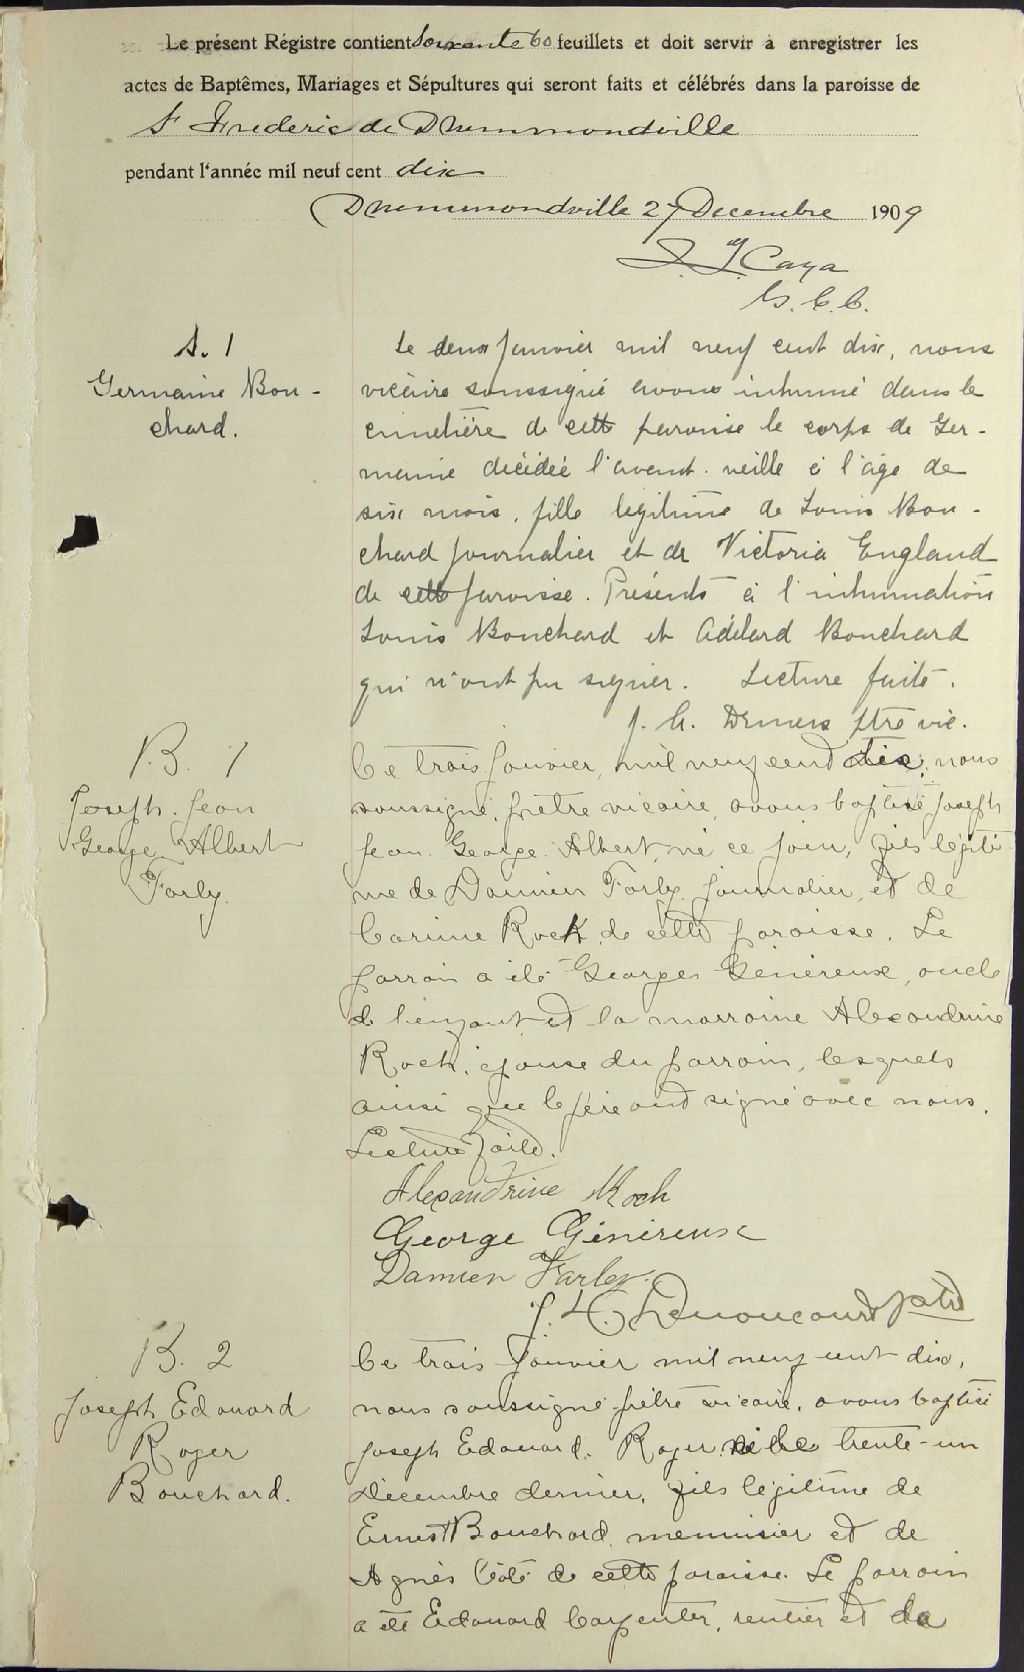 Le présent Régistre contient soixante 60 feuillets et doit servir à enregistrer les
actes de Baptêmes, Mariages et Sépultures qui seront faits et célébrés dans la paroisse de
St Frederic de Drummondville
pendant l'année mil neuf cent dix
Drummondville 27 Decembre 1909
Caya
C. C.
S. 1
Germaine Bou-
chard.
Le deux janvier mil neuf cent dix, nous
vicaire soussigné avons inhumé dans le
cimetière de cette paroisse le corps de Ger-
maine décédée l'avant-veille à l'âge de
six mois, fille légitime de Louis Bou-
chard journalier et de Victoria England
de cette paroisse. Présents à l'inhumation
Louis Bouchard et Adélard Bouchard
qui n'ont pu signer. Lecture faite.
Demers ptre vic.
B. 1
Joseph. Jean
George Albert
Farly.
Ce trois janvier, mil neuf cent dix, nous
soussigné, prêtre vicaire, avons baptisé Joseph
Jean George Albert, né ce jour, fils légiti-
me de Damien Farly, journalier, et de
Corinne Rock, de cette paroisse. Le
parrain a été Georges Généreux, oncle
de l'enfant et la marraine Alexandrine
Roch, épouse du parrain, lesquels
ainsi que le père ont signé avec nous.
Lecture faite.
Alexandrine Roch
George Généreux
Damien Farley.
J. H. Lenoncourt ptre
B. 2
Joseph Edouard
Roger
Bouchard.
Ce trois janvier mil neuf cent dix,
nous soussigné prêtre vicaire, avons baptisé
Joseph Edouard, Roger, né le trente-un
Décembre dernier, fils légitime de
Ernest Bouchard, menuisier et de
Agnès Côté de cette paroisse. Le parrain
a été Edouard Carpenter, rentier et la